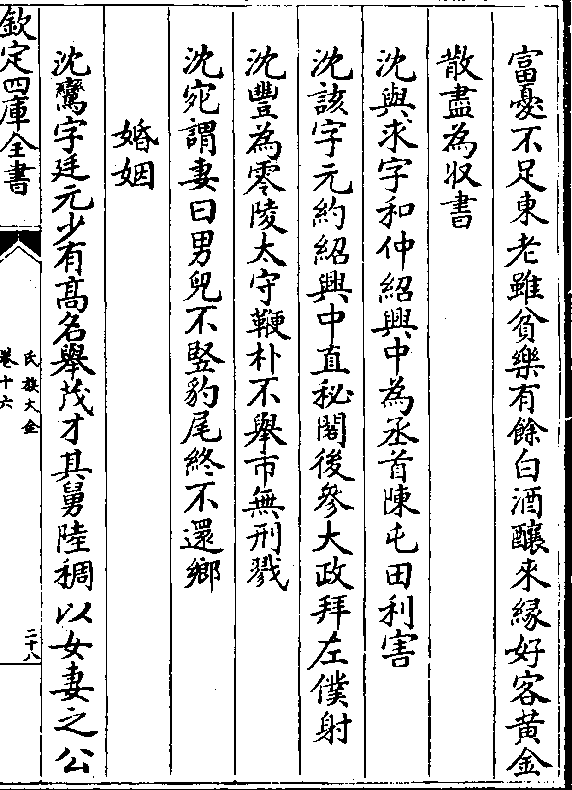 富憂不足東老雖貧樂有餘白酒釀來縁好客黄金
散盡為収書
沈與求字和仲紹興中為丞首陳屯田利害
沈該字元約紹興中直秘閣後參大政拜左僕射
沈豐為零陵太守鞭朴不舉市無刑戮
沈宛謂妻曰男兒不竪豹尾終不還鄉
婚姻
沈鸞字廷元少有髙名舉茂才其舅陸稠以女妻之公
欽定四庫全書
氏族大全
卷十六
二十八